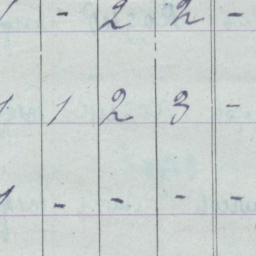 1 - 2 2 -
1 1 2 3 -
1 - - - -